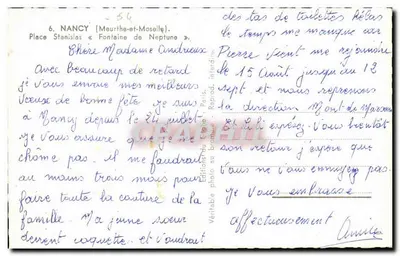 6. NANCY (Meurthe-et-Moselle).
Place Stanislas « Fontaine de Neptune ».
54
Chère Madame Andrieux
Avec beaucoup de retard
je vous envoie mes meilleurs
vœux de bonne fête. Je suis
à Nancy depuis le juillet
je vous assure que je ne
chôme pas. il me faudrait
au moins trois mois pour
faire toute la couture de la
famille. Ma jeune sœur
devient coquette et voudrait
des tas de toilettes hélas
le temps me manque car
Pierre vient me rejoindre
le 15 Août jusqu'au 12
sept et nous reprenons
la direction Mont de Marsan
vous bientôt
son retour j'espère que
vous ne vous ennuyez pas.
Je vous embrasse
affectueusement